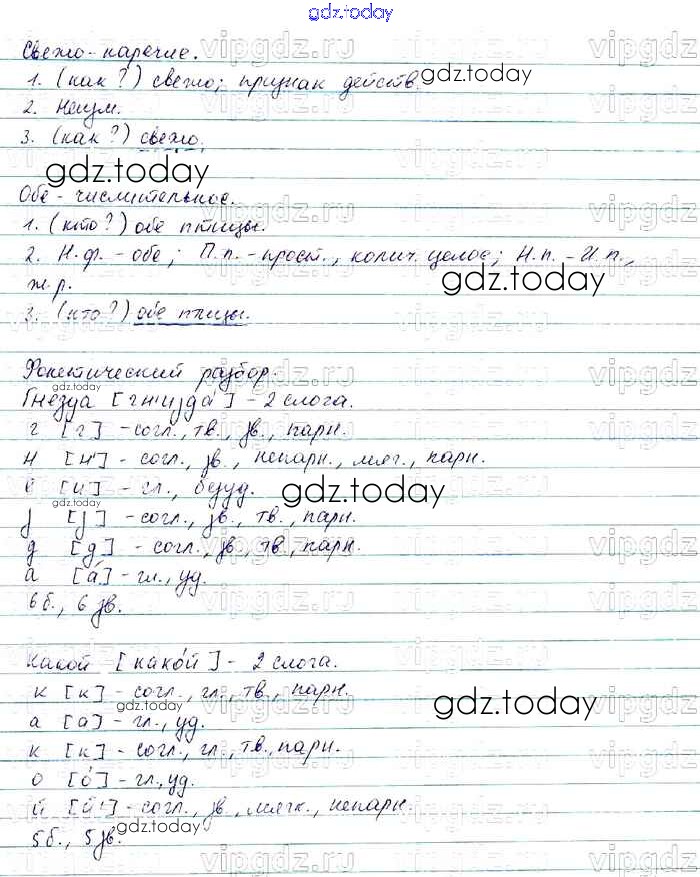 gdz.today
Свежо - наречие.
1. (как?) свежо; признак действ.
2. Неизм.
3. (как?) свежо.
Обе - числительное.
1. (кто?) обе птицы.
2. Н.ф. - обе; П.п. - прост., колич. целое; Н.п. - И.п.,
ж.р.
3. (кто?) обе птицы.
Фонетический разбор.
Гнезда [гн'изда́] - 2 слога.
г [г] - согл., тв., зв., парн.
н [н'] - согл., зв., непарн., мяг., парн.
е [и] - гл., безуд.
з [з] - согл., зв., тв., парн.
д [д] - согл., зв., тв., парн.
а [а́] - гл., уд.
6 б., 6 зв.
Какой [како́й] - 2 слога.
к [к] - согл., гл., тв., парн.
а [а] - гл., уд.
к [к] - согл., гл., тв., парн.
о [о́] - гл., уд.
й [й'] - согл., зв., мягк., непарн.
5 б., 5 зв.